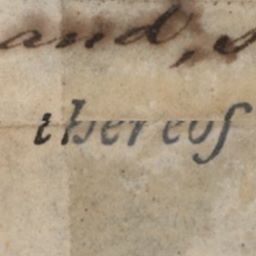 and, s
thereof